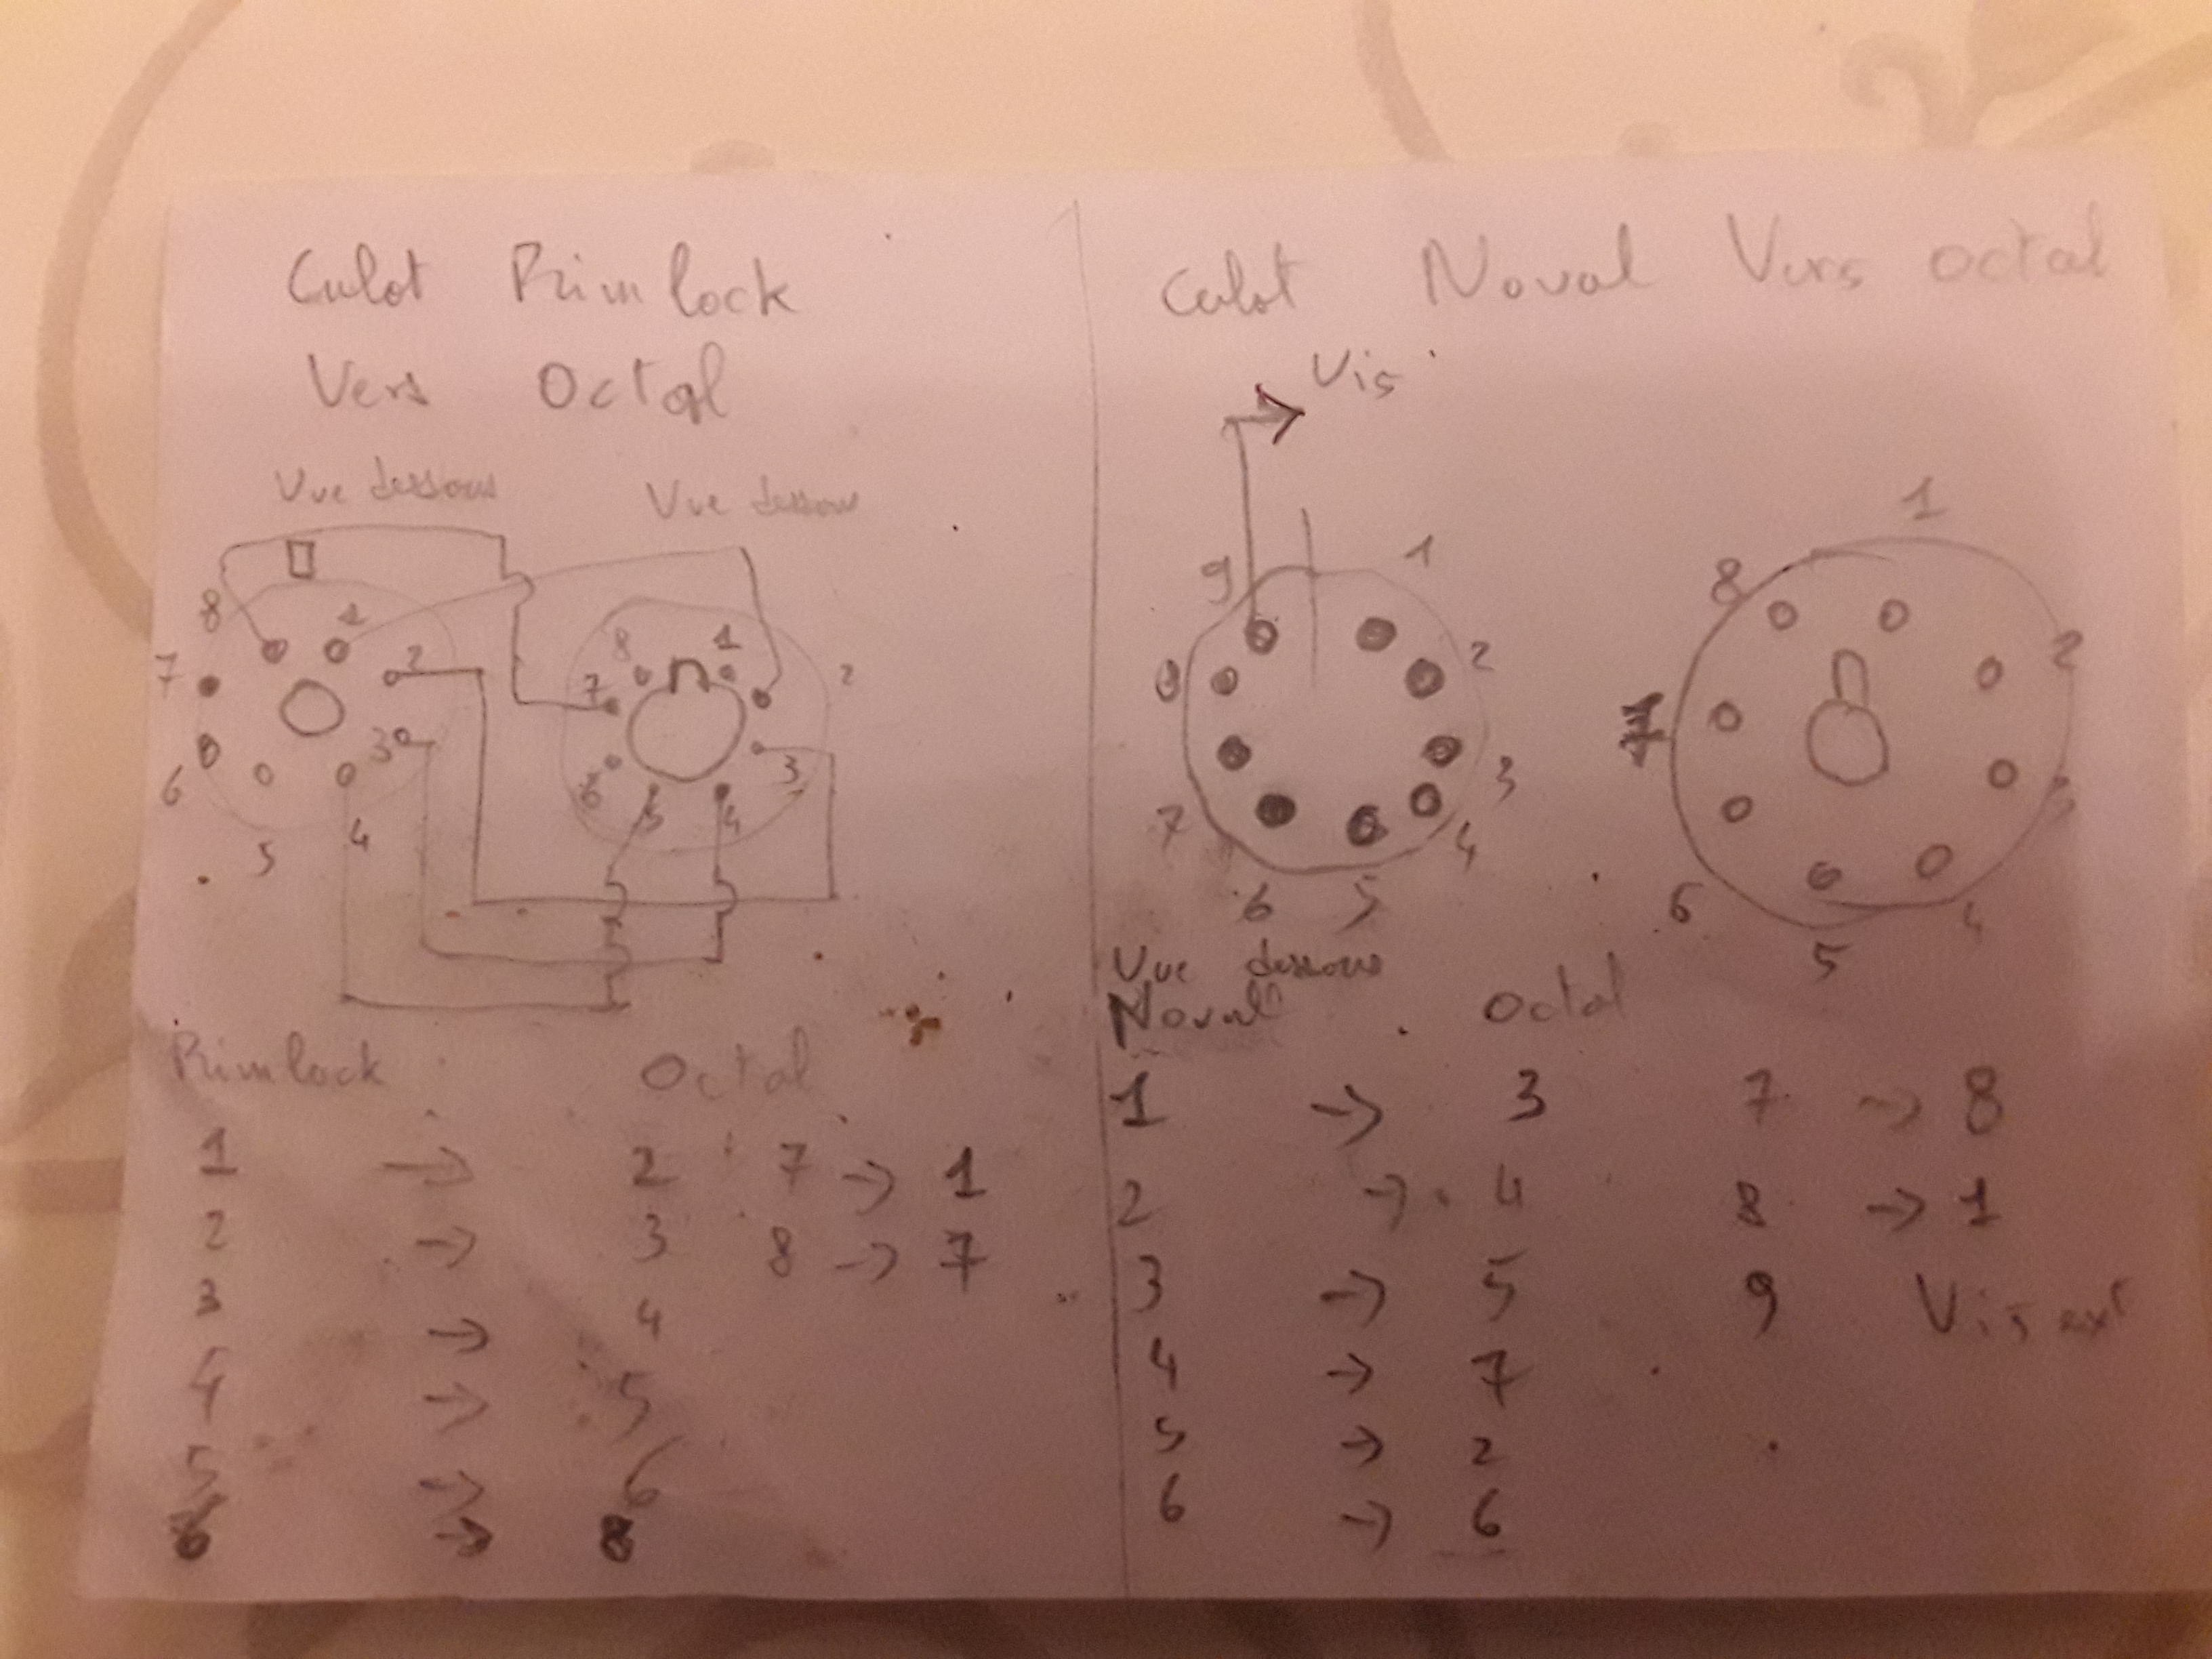 Culot Rimlock
Vers Octal
Vue dessous Vue dessous
8 1 2 3 4 5 6 7
8 1 2 3 4 5 6 7
Rimlock Octal
1 → 2 7 → 1
2 → 3 8 → 7
3 → 4
4 → 5
5 → 6
6 → 8
Culot Noval Vers octal
Vis
9 1 2 3 4 5 6 7 8
1 2 3 4 5 6 7 8
Vue dessous
Noval Octal
1 → 3 7 → 8
2 → 4 8 → 1
3 → 5 9 Vis ext
4 → 7
5 → 2
6 → 6